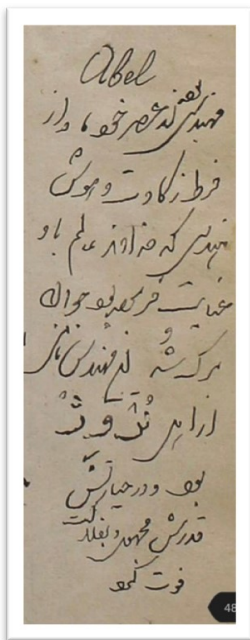 Abel
مهندسی بوده در عصر خود ما و از
فرط زکاوت و هوش
مهندسی که خداوند عالم باو
عنایت فرموده بود حواله
مرگ شد و
از اهل
بود و در حیاتش
قدرش مجهول و بفلاکت
فوت نمود
48